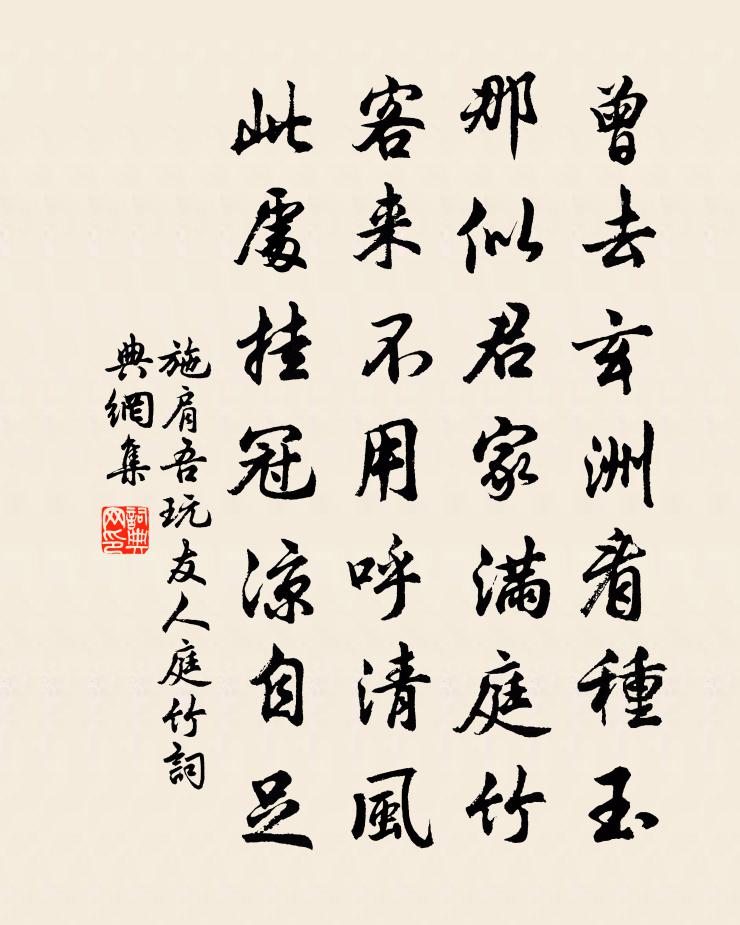 曾去玄洲看種玉
那似君家滿庭竹
客来不用呼清風
此處挂冠凉自足
施肩吾玩友人庭竹詞
典網集
詞典网印